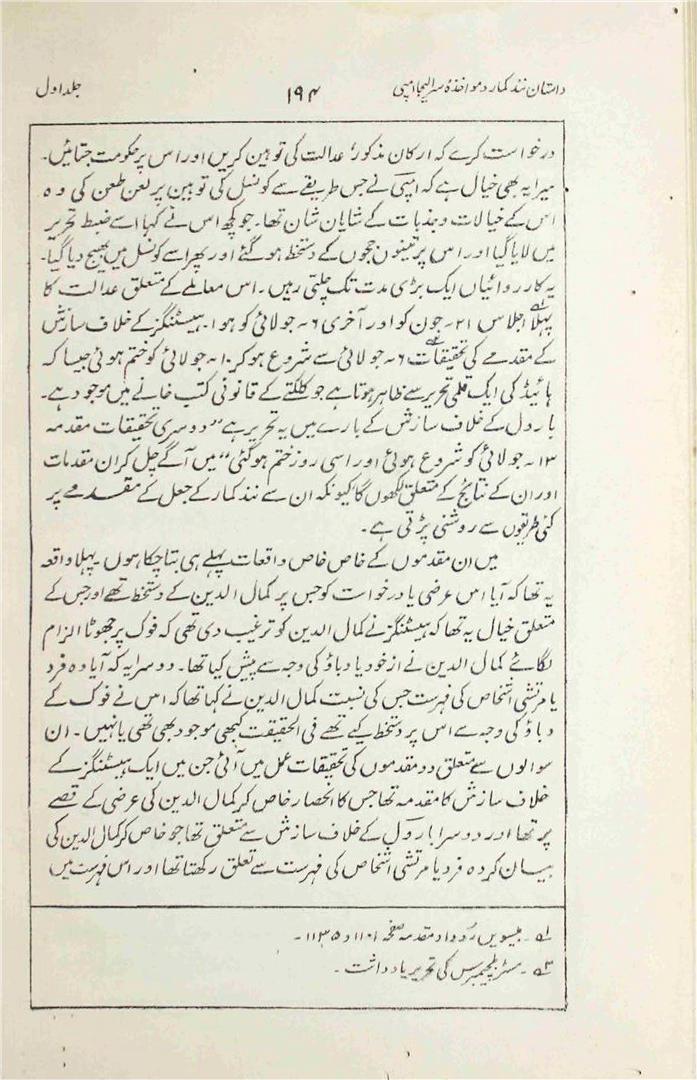 داستان نند کمار و مواخذۂ سر ایلیجا امپی ۱۹۴ جلد اول
درخواست کرے کہ ارکان مذکور، عدالت کی توہین کریں اور اس پر حکومت جتائیں۔
میرا یہ بھی خیال ہے کہ امپی نے جس طریقے سے کونسل کی توہین پر لعن طعن کی وہ
اس کے خیالات و جذبات کے شایان شان تھا۔ جو کچھ اس نے کہا اسے ضبط تحریر
میں لایا گیا اور اس پر تینوں ججوں کے دستخط ہو گئے اور پھر اسے کونسل میں بھیج دیا گیا۔
یہ کارروائیاں ایک بڑی مدت تک چلتی رہیں۔ اس معاملے کے متعلق عدالت کا
پہلا اجلاس ۲۱۔ جون کو اور آخری ۶۔ جولائی کو ہوا۔ ہیسٹنگز کے خلاف سازش
کے مقدمے کی تحقیقات ۶۔ جولائی سے شروع ہو کر ۱۰۔ جولائی کو ختم ہوئی جیسا کہ
ہائیڈ کی ایک قلمی تحریر سے ظاہر ہوتا ہے جو کلکتے کے قانونی کتب خانے میں موجود ہے۔
بارول کے خلاف سازش کے بارے میں یہ تحریر ہے ”دوسری تحقیقات مقدمہ
۱۳۔ جولائی کو شروع ہوئی اور اسی روز ختم ہو گئی“ میں آگے چل کر ان مقدمات
اور ان کے نتائج کے متعلق لکھوں گا کیونکہ ان سے نند کمار کے جعل کے مقدمے پر
کئی طریقوں سے روشنی پڑتی ہے۔
میں ان مقدموں کے خاص خاص واقعات پہلے ہی بتا چکا ہوں۔ پہلا واقعہ
یہ تھا کہ آیا اس عرضی یا درخواست کو جس پر کمال الدین کے دستخط تھے اور جس کے
متعلق خیال یہ تھا کہ ہیسٹنگز نے کمال الدین کو ترغیب دی تھی کہ فوک پر جھوٹا الزام
لگائے کمال الدین نے از خود یا دباؤ کی وجہ سے پیش کیا تھا۔ دوسرا یہ کہ آیا وہ فرد
یا مرتشی اشخاص کی فہرست جس کی نسبت کمال الدین نے کہا تھا کہ اس نے فوک کے
دباؤ کی وجہ سے اس پر دستخط کیے تھے فی الحقیقت کبھی موجود بھی تھی یا نہیں۔ ان
سوالوں سے متعلق دو مقدموں کی تحقیقات عمل میں آئی جن میں ایک ہیسٹنگز کے
خلاف سازش کا مقدمہ تھا جس کا انحصار خاص کر کمال الدین کی عرضی کے قصے
پر تھا اور دوسرا بارول کے خلاف سازش سے متعلق تھا جو خاص کر کمال الدین کی
بیان کردہ فرد یا مرتشی اشخاص کی فہرست سے تعلق رکھتا تھا اور اس فہرست میں
۱؎۔ بیسویں روداد مقدمہ صفحہ ۱۱۰۱ و ۱۱۳۵۔
۲؎۔ مسٹر کی تحریر یادداشت۔